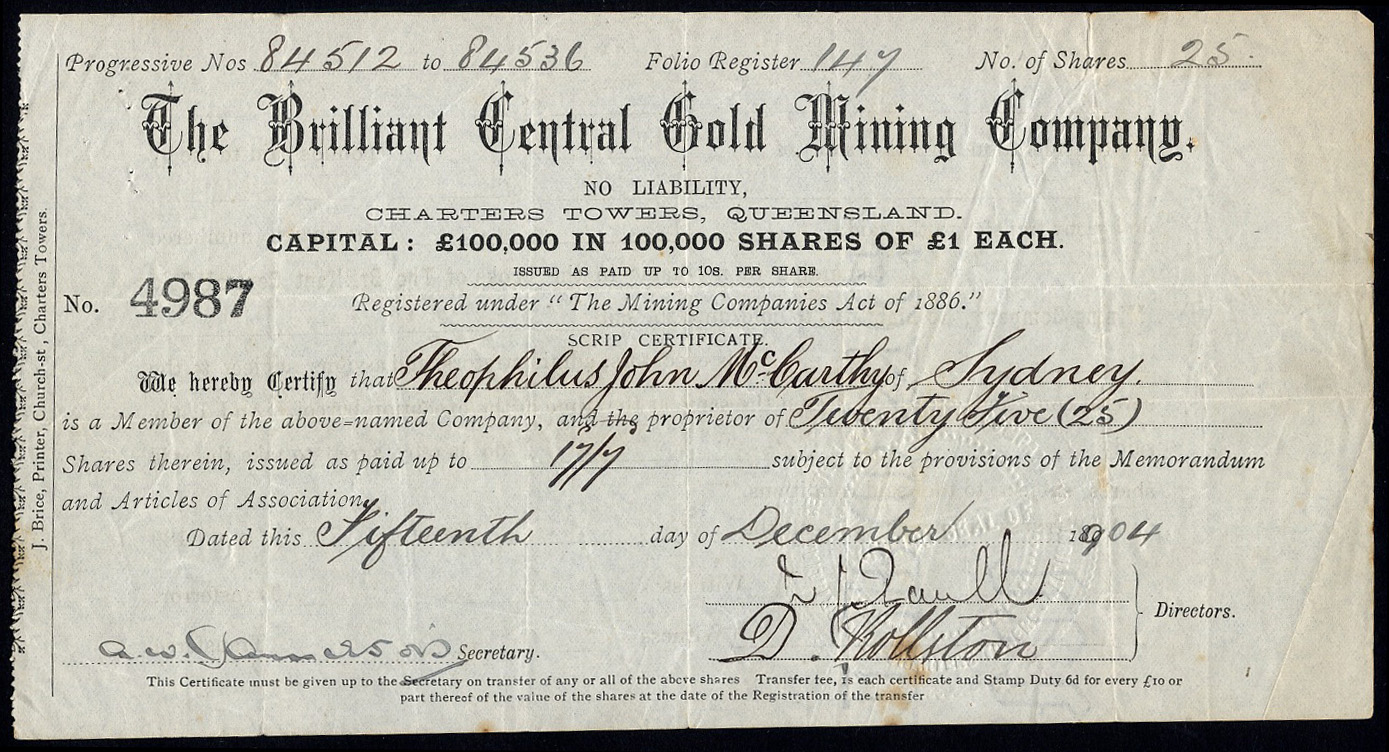 Progressive Nos 84512 to 84536 Folio Register 147 No. of Shares 25
The Brilliant Central Gold Mining Company.
NO LIABILITY,
CHARTERS TOWERS, QUEENSLAND.
CAPITAL: £100,000 IN 100,000 SHARES OF £1 EACH.
ISSUED AS PAID UP TO 10S. PER SHARE.
No. 4987 Registered under "The Mining Companies Act of 1886."
SCRIP CERTIFICATE.
We hereby Certify that Theophilus John McCarthy of Sydney.
is a Member of the above-named Company, and the proprietor of Twenty Five (25)
Shares therein, issued as paid up to 17/7 subject to the provisions of the Memorandum
and Articles of Association.
Dated this Fifteenth day of December 1904
Directors.
D. Rollston
Secretary.
This Certificate must be given up to the Secretary on transfer of any or all of the above shares Transfer fee, 1s each certificate and Stamp Duty 6d for every £10 or
part thereof of the value of the shares at the date of the Registration of the transfer
J. Brice, Printer, Church-st, Charters Towers.